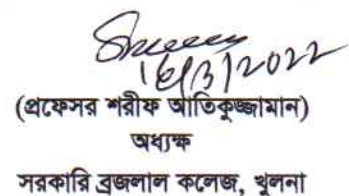 16/3/2022
(প্রফেসর শরীফ আতিকুজ্জামান)
অধ্যক্ষ
সরকারি ব্রজলাল কলেজ, খুলনা